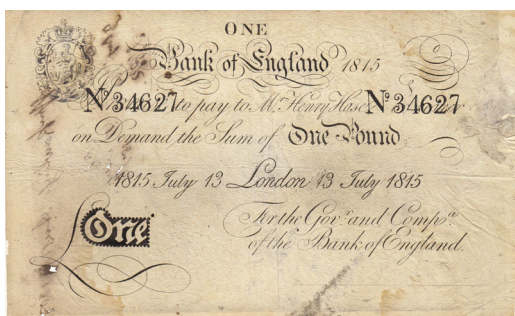 ONE
Bank of England 1815
Nº 34627 to pay to Mr. Henry Hase Nº 34627
on Demand the Sum of One Pound
1815 July 13 London 13 July 1815
For the Govr. and Compa.
of the Bank of England.
£ One